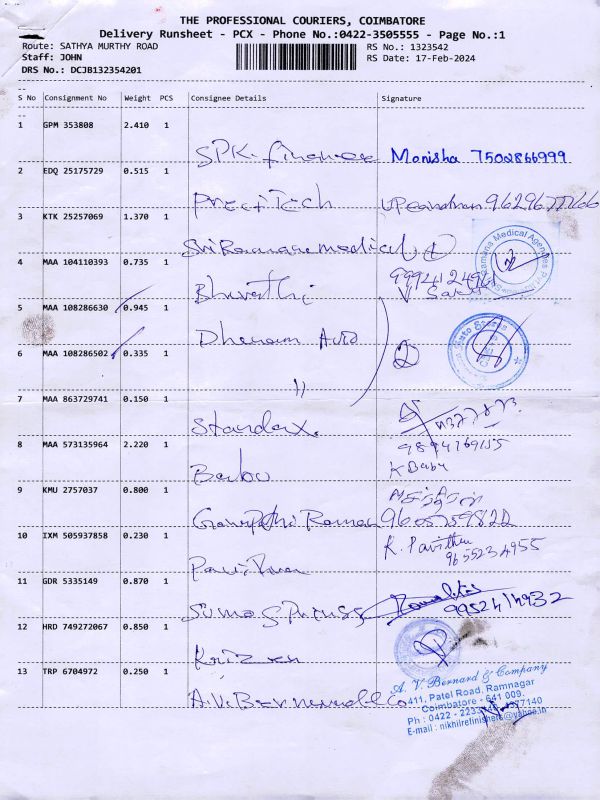 THE PROFESSIONAL COURIERS, COIMBATORE
Delivery Runsheet - PCX - Phone No.:0422-3505555 - Page No.:1
Route: SATHYA MURTHY ROAD RS No.: 1323542
Staff: JOHN RS Date: 17-Feb-2024
DRS No.: DCJB132354201
S No Consignment No Weight PCS Consignee Details Signature
1 GPM 353808 2.410 1
SPK. finance Monisha 7502866999
2 EDQ 25175729 0.515 1
PreciTech
3 KTK 25257069 1.370 1
Sri Ramana medical
4 MAA 104110393 0.735 1
Bharathi
5 MAA 108286630 0.945 1
Dharam Auto 2
6 MAA 108286502 0.335 1
"
7 MAA 863729741 0.150 1
8 MAA 573135964 2.220 1
Babu K Babu
9 KMU 2757037 0.800 1
Raman
10 IXM 505937858 0.230 1
R. Pavithra
9655234955
11 GDR 5335149 0.870 1
9952414932
12 HRD 749272067 0.850 1
13 TRP 6704972 0.250 1
A. V. Bernard & Company
411, Patel Road, Ramnagar
Coimbatore - 641 009.
Ph : 0422 - 2233
E-mail : nikhilrefinishers@yahoo.in